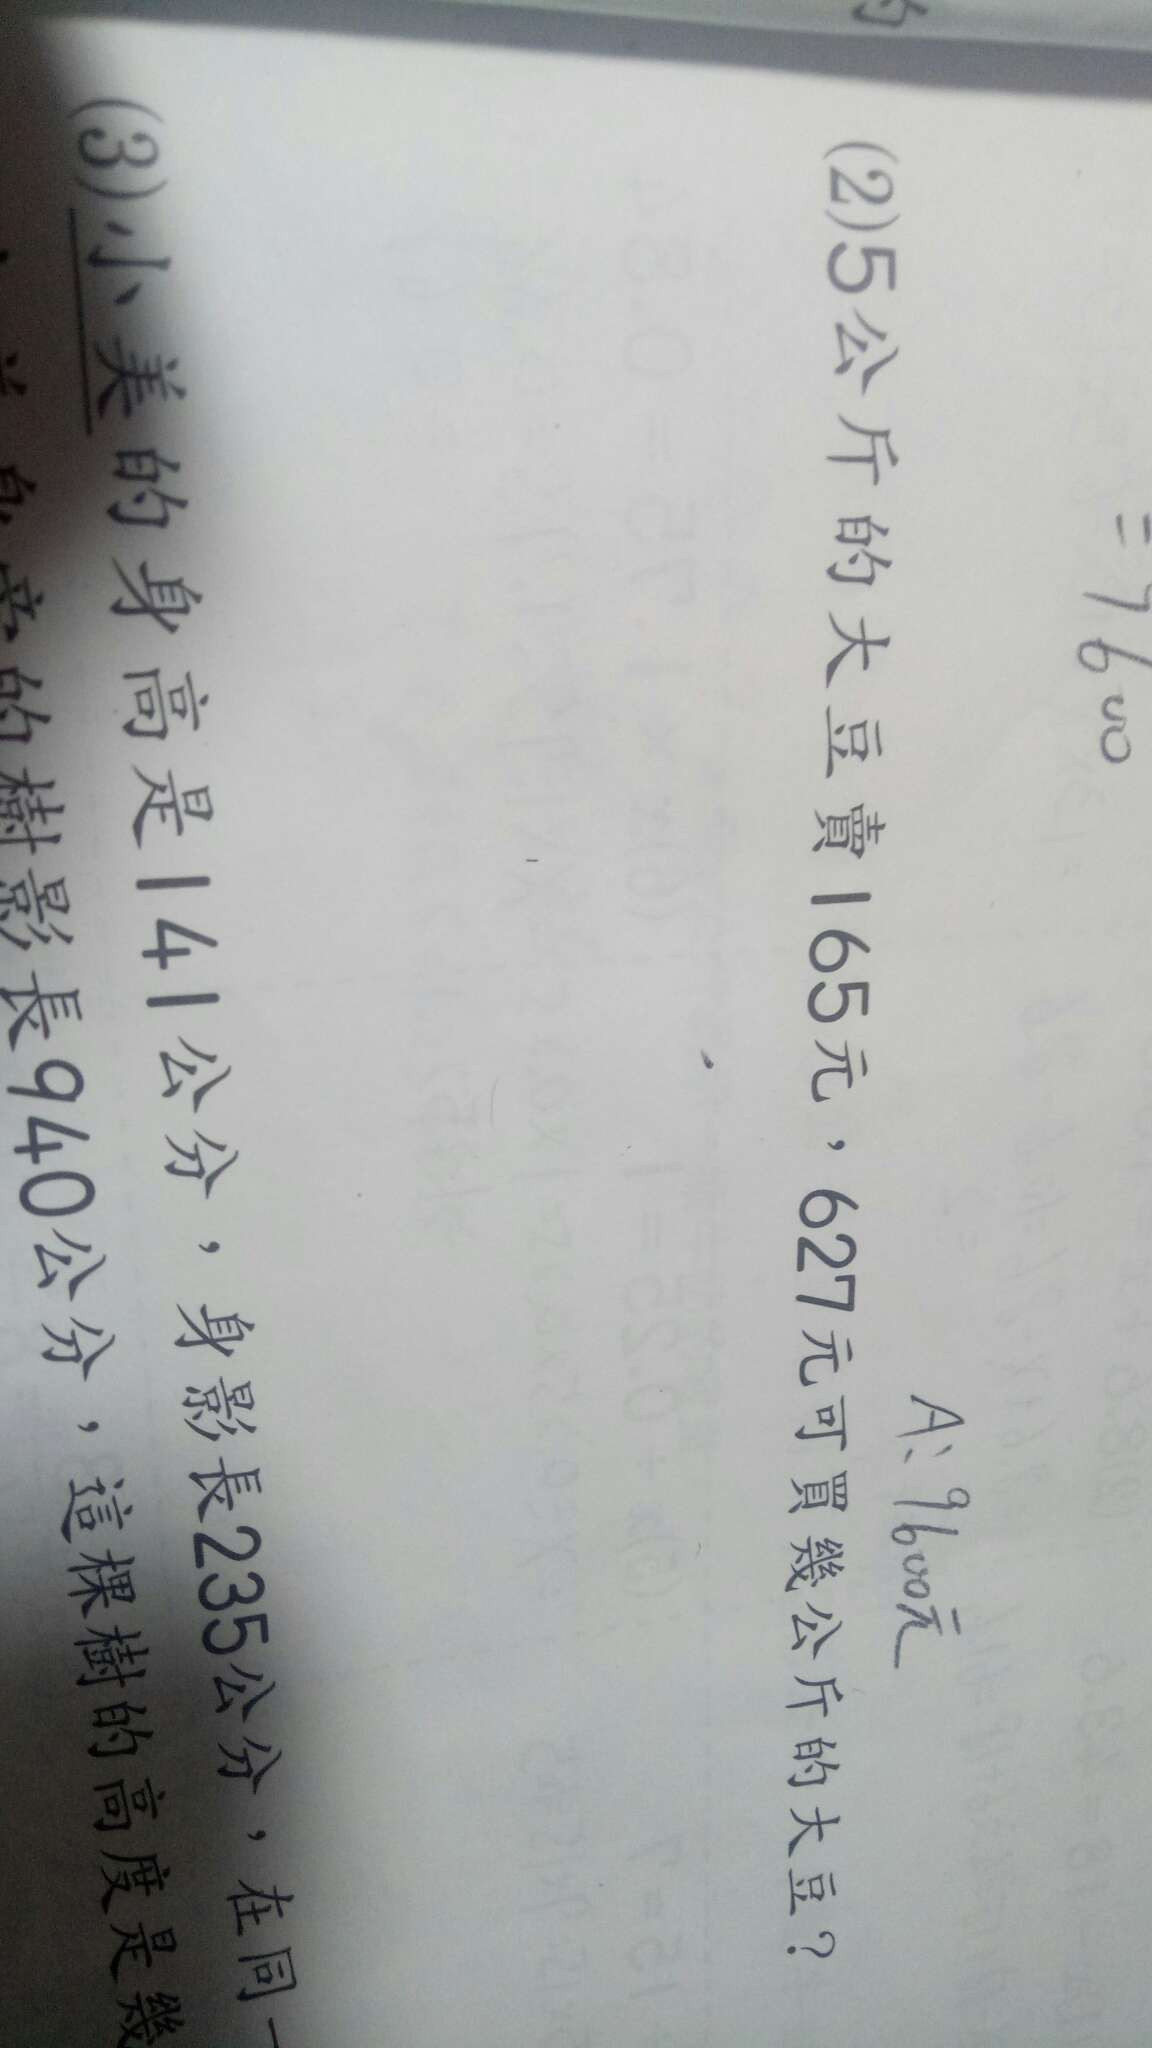 的
=9600
A:9600元
(2)5公斤的大豆賣165元，627元可買幾公斤的大豆？
(3)小美的身高是141公分，身影長235公分，在同一
的樹影長940公分，這棵樹的高度是幾